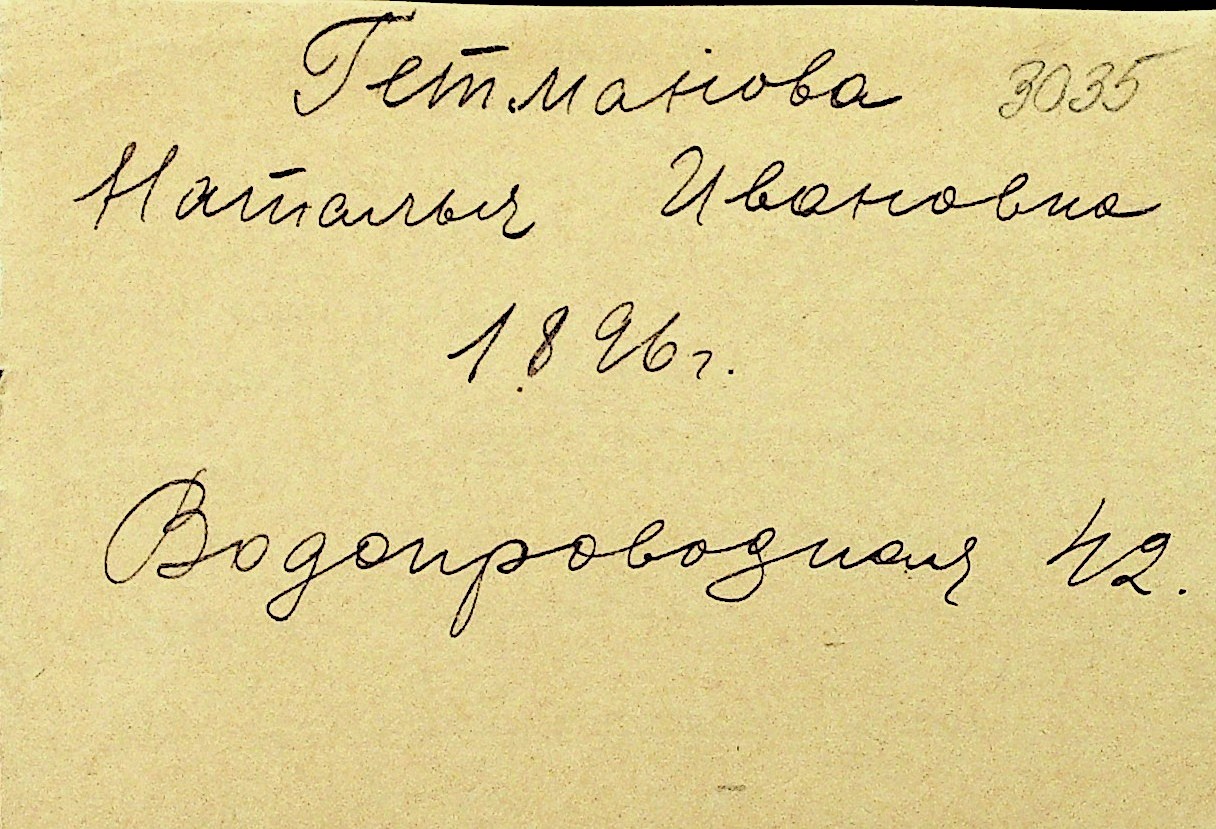 Гетманова 3035
Наталья Ивановна
1896г.
Водопроводная 42.